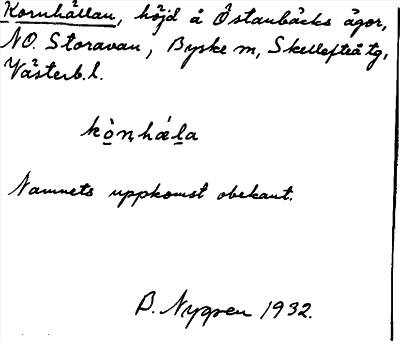 Kornhällan, höjd å Östanbäcks ägor,
NO. Storavan, Byske m, Skellefteå tg,
Västerb. l.
kòn̦hǽla
Namnets uppkomst obekant.
B. Nygren 1932.